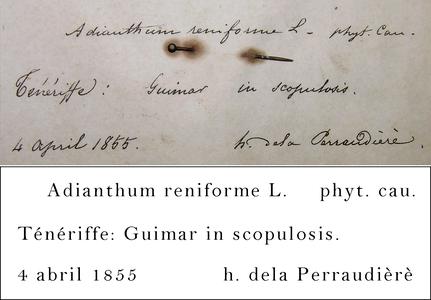 Adianthum reniforme L. phyt. Cau.
Ténériffe: Guimar in scopulosis.
4 april 1855. h. dela Perraudièrè.
Adianthum reniforme L. phyt. cau.
Ténériffe: Guimar in scopulosis.
4 abril 1855 h. dela Perraudièrè